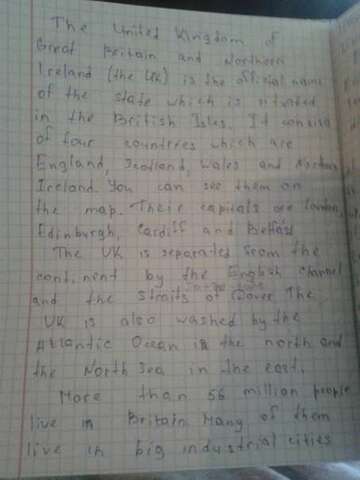 The United Kingdom of
Great Britain and Northern
Ireland (the UK) is the official name
of the state which is situated
in the British Isles. It consist
of four countries which are
England, Scotland, Wales and Northern
Ireland. You can see them on
the map. Their capitals are London,
Edinburgh, Cardiff and Belfast
The UK is separated from the
continent by the English channel
and the straits of Dover. The
UK is also washed by the
Atlantic Ocean in the north and
the North Sea in the east.
More than 56 million people
live in Britain. Many of them
live in big industrial cities